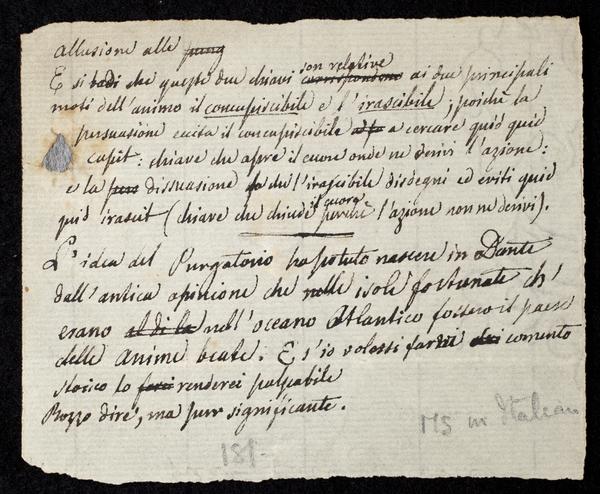 allusione alle
E si badi che queste due chiavi son relative ai due principali
moti dell'animo il concupiscibile e l'irascibile; poichè la
persuasione excita il concupiscibile a cercare quid quid
cupit: chiave che apre il cuore onde ne derivi l'azione:
e la dissuasione che l'irascibile disdegni ed eviti quid
quid irascit (chiave che chiude il cuore perchè l'azione non ne derivi).
L'idea del Purgatorio ha potuto nascere in Dante
dall'antica opinione che nelle isole fortunate ch'
erano al di là nell'oceano Atlantico fossero il paese
delle anime beate. E s'io volessi comento
storico lo renderei palpabile
Rozzo dire, ma pur significante.
MS in Italian
181-